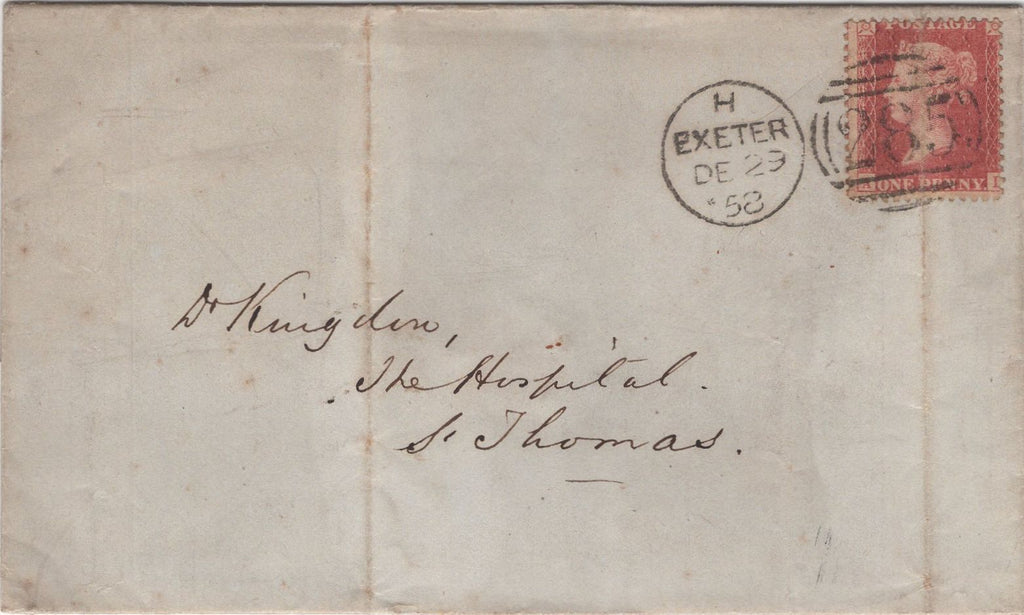 POSTAGE
H
EXETER
DE 29
58
285
A ONE PENNY. I
Dr Kingdon,
The Hospital.
St Thomas.